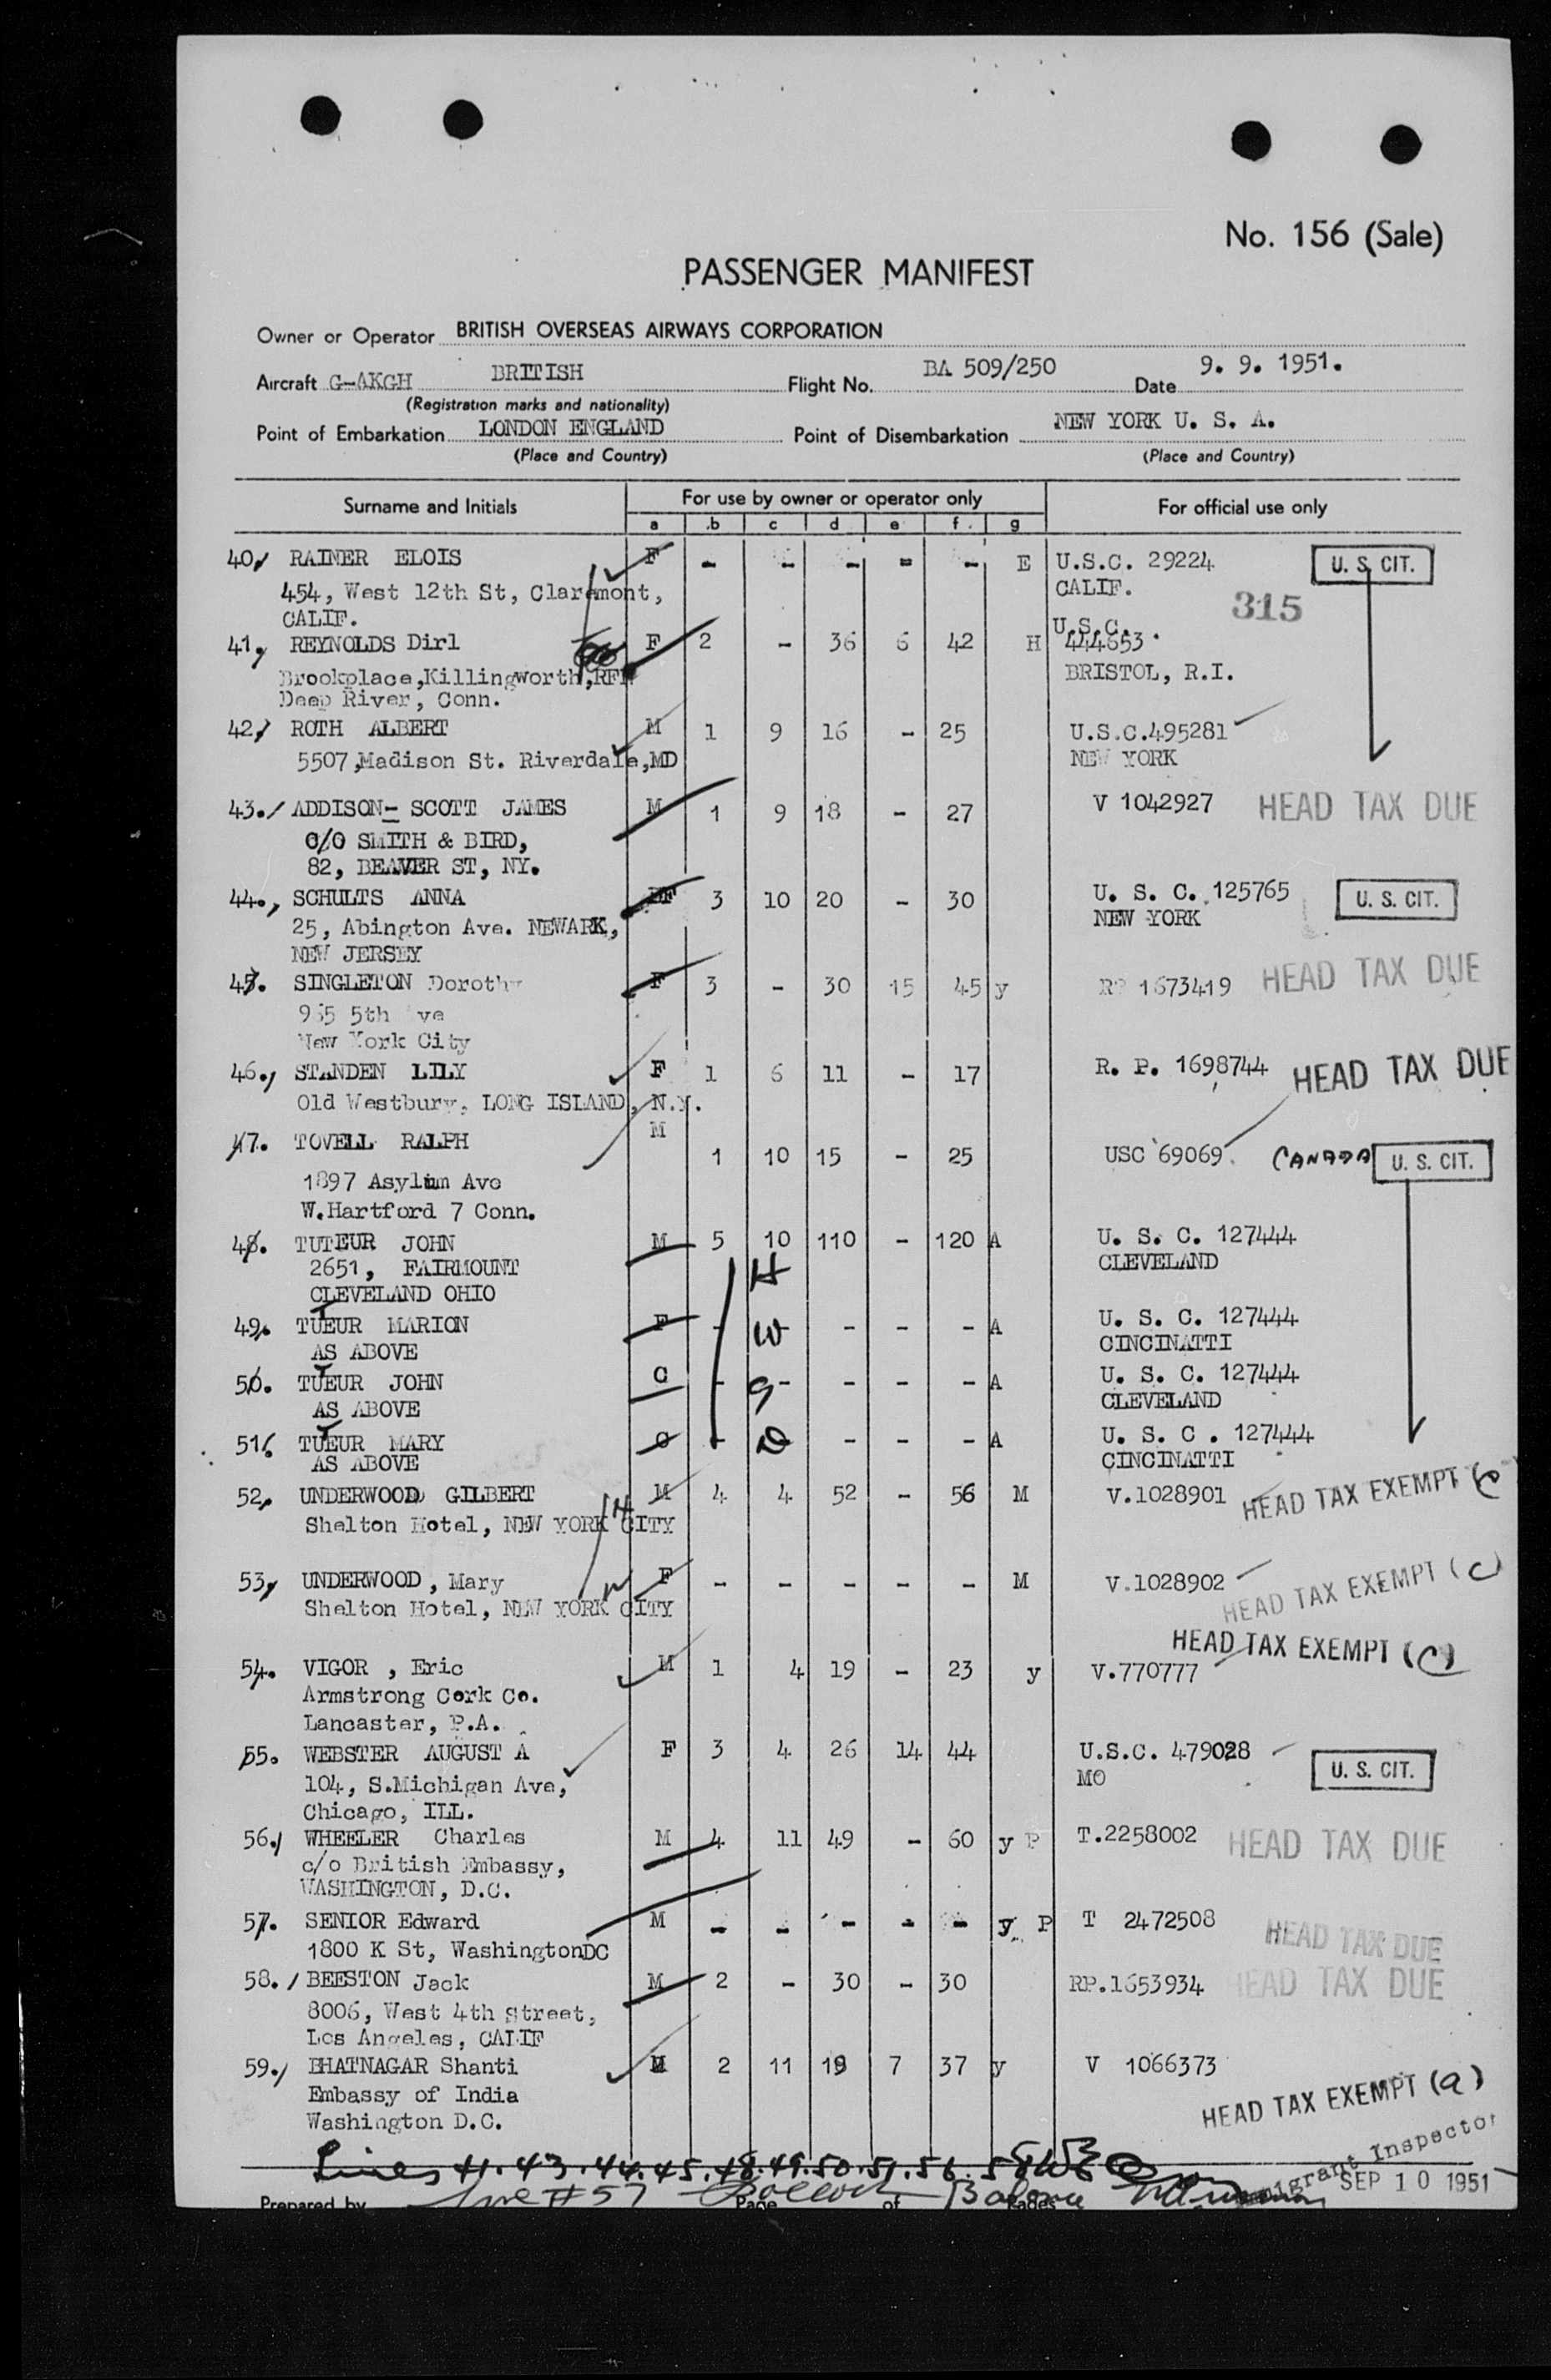 No. 156 (Sale)
PASSENGER MANIFEST
Owner or Operator BRITISH OVERSEAS AIRWAYS CORPORATION
Aircraft G-AKGH BRITISH Flight No. BA 509/250 Date 9. 9. 1951.
(Registration marks and nationality)
Point of Embarkation LONDON ENGLAND Point of Disembarkation NEW YORK U. S. A.
(Place and Country) (Place and Country)
Surname and Initials For use by owner or operator only For official use only
a b c d e f g
40. RAINER ELOIS F - - - - - E U.S.C. 29224 U. S. CIT.
454, West 12th St, Claremont, CALIF. 315
CALIF.
41. REYNOLDS Dirl F 2 - 36 6 42 H U.S.C. 444653
Brookplace,Killingworth,RFD BRISTOL, R.I.
Deep River, Conn.
42. ROTH ALBERT M 1 9 16 - 25 U.S.C.495281
5507,Madison St. Riverdale,MD NEW YORK
43. ADDISON- SCOTT JAMES M 1 9 18 - 27 V 1042927 HEAD TAX DUE
C/O SMITH & BIRD,
82, BEAVER ST, NY.
44. SCHULTS ANNA F 3 10 20 - 30 U. S. C. 125765 U. S. CIT.
25, Abington Ave. NEWARK, NEW YORK
NEW JERSEY
45. SINGLETON Dorothy F 3 - 30 15 45 y RP 1673419 HEAD TAX DUE
965 5th ve
New York City
46. STANDEN LILY F 1 6 11 - 17 R. P. 1698744 HEAD TAX DUE
Old Westbury, LONG ISLAND, N.Y.
47. TOVELL RALPH M 1 10 15 - 25 USC 69069 CANADA U. S. CIT.
1897 Asylum Ave
W.Hartford 7 Conn.
48. TUTEUR JOHN M 5 10 110 - 120 A U. S. C. 127444
2651, FAIRMOUNT CLEVELAND
CLEVELAND OHIO H
49. TUTEUR MARION F - W - - - A U. S. C. 127444
AS ABOVE CINCINATTI
50. TUTEUR JOHN C - S - - - - A U. S. C. 127444
AS ABOVE CLEVELAND
51. TUTEUR MARY C - D - - - A U. S. C . 127444
AS ABOVE CINCINATTI
52. UNDERWOOD GILBERT H M 4 4 52 - 56 M V.1028901 HEAD TAX EXEMPT (c)
Shelton Hotel, NEW YORK CITY
53. UNDERWOOD, Mary W F - - - - - M V.1028902 HEAD TAX EXEMPT (c)
Shelton Hotel, NEW YORK CITY
54. VIGOR , Eric M 1 4 19 - 23 y V.770777 HEAD TAX EXEMPT (c)
Armstrong Cork Co.
Lancaster, P.A.
55. WEBSTER AUGUST A F 3 4 26 14 44 U.S.C. 479028 U. S. CIT.
104, S.Michigan Ave, MO
Chicago, ILL.
56. WHEELER Charles M 4 11 49 - 60 y P T.2258002 HEAD TAX DUE
c/o British Embassy,
WASHINGTON, D.C.
57. SENIOR Edward M - - - - - y P T 2472508 HEAD TAX DUE
1800 K St, WashingtonDC
58. BEESTON Jack M 2 - 30 - 30 RP.1653934 HEAD TAX DUE
8006, West 4th street,
Los Angeles, CALIF
59. BHATNAGAR Shanti M 2 11 19 7 37 y V 1066373
Embassy of India HEAD TAX EXEMPT (a)
Washington D.C.
Lines 41.43.44.45.48.49.50.51.56.58
Immigrant Inspector
SEP 10 1951
Prepared by Line #57 Page of Pages